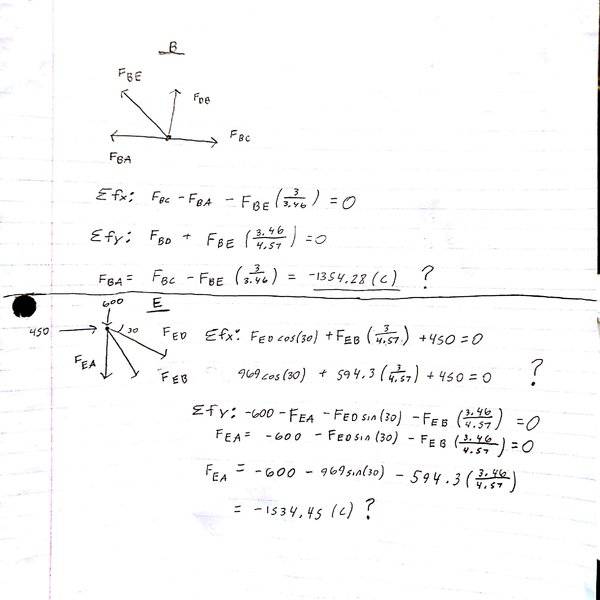 B
F_BE
F_DB
F_BC
F_BA
Σfx: F_BC - F_BA - F_BE (3/3.46) = 0
Σfy: F_BD + F_BE (3.46/4.57) = 0
F_BA = F_BC - F_BE (3/3.46) = -1354.28 (C) ?
600
E
450
30
F_ED
F_EA
F_EB
Σfx: F_ED cos(30) + F_EB (3/4.57) + 450 = 0
969 cos(30) + 594.3 (3/4.57) + 450 = 0 ?
Σfy: -600 - F_EA - F_ED sin(30) - F_EB (3.46/4.57) = 0
F_EA = -600 - F_ED sin(30) - F_EB (3.46/4.57) = 0
F_EA = -600 - 969 sin(30) - 594.3 (3.46/4.57)
= -1534.45 (C) ?